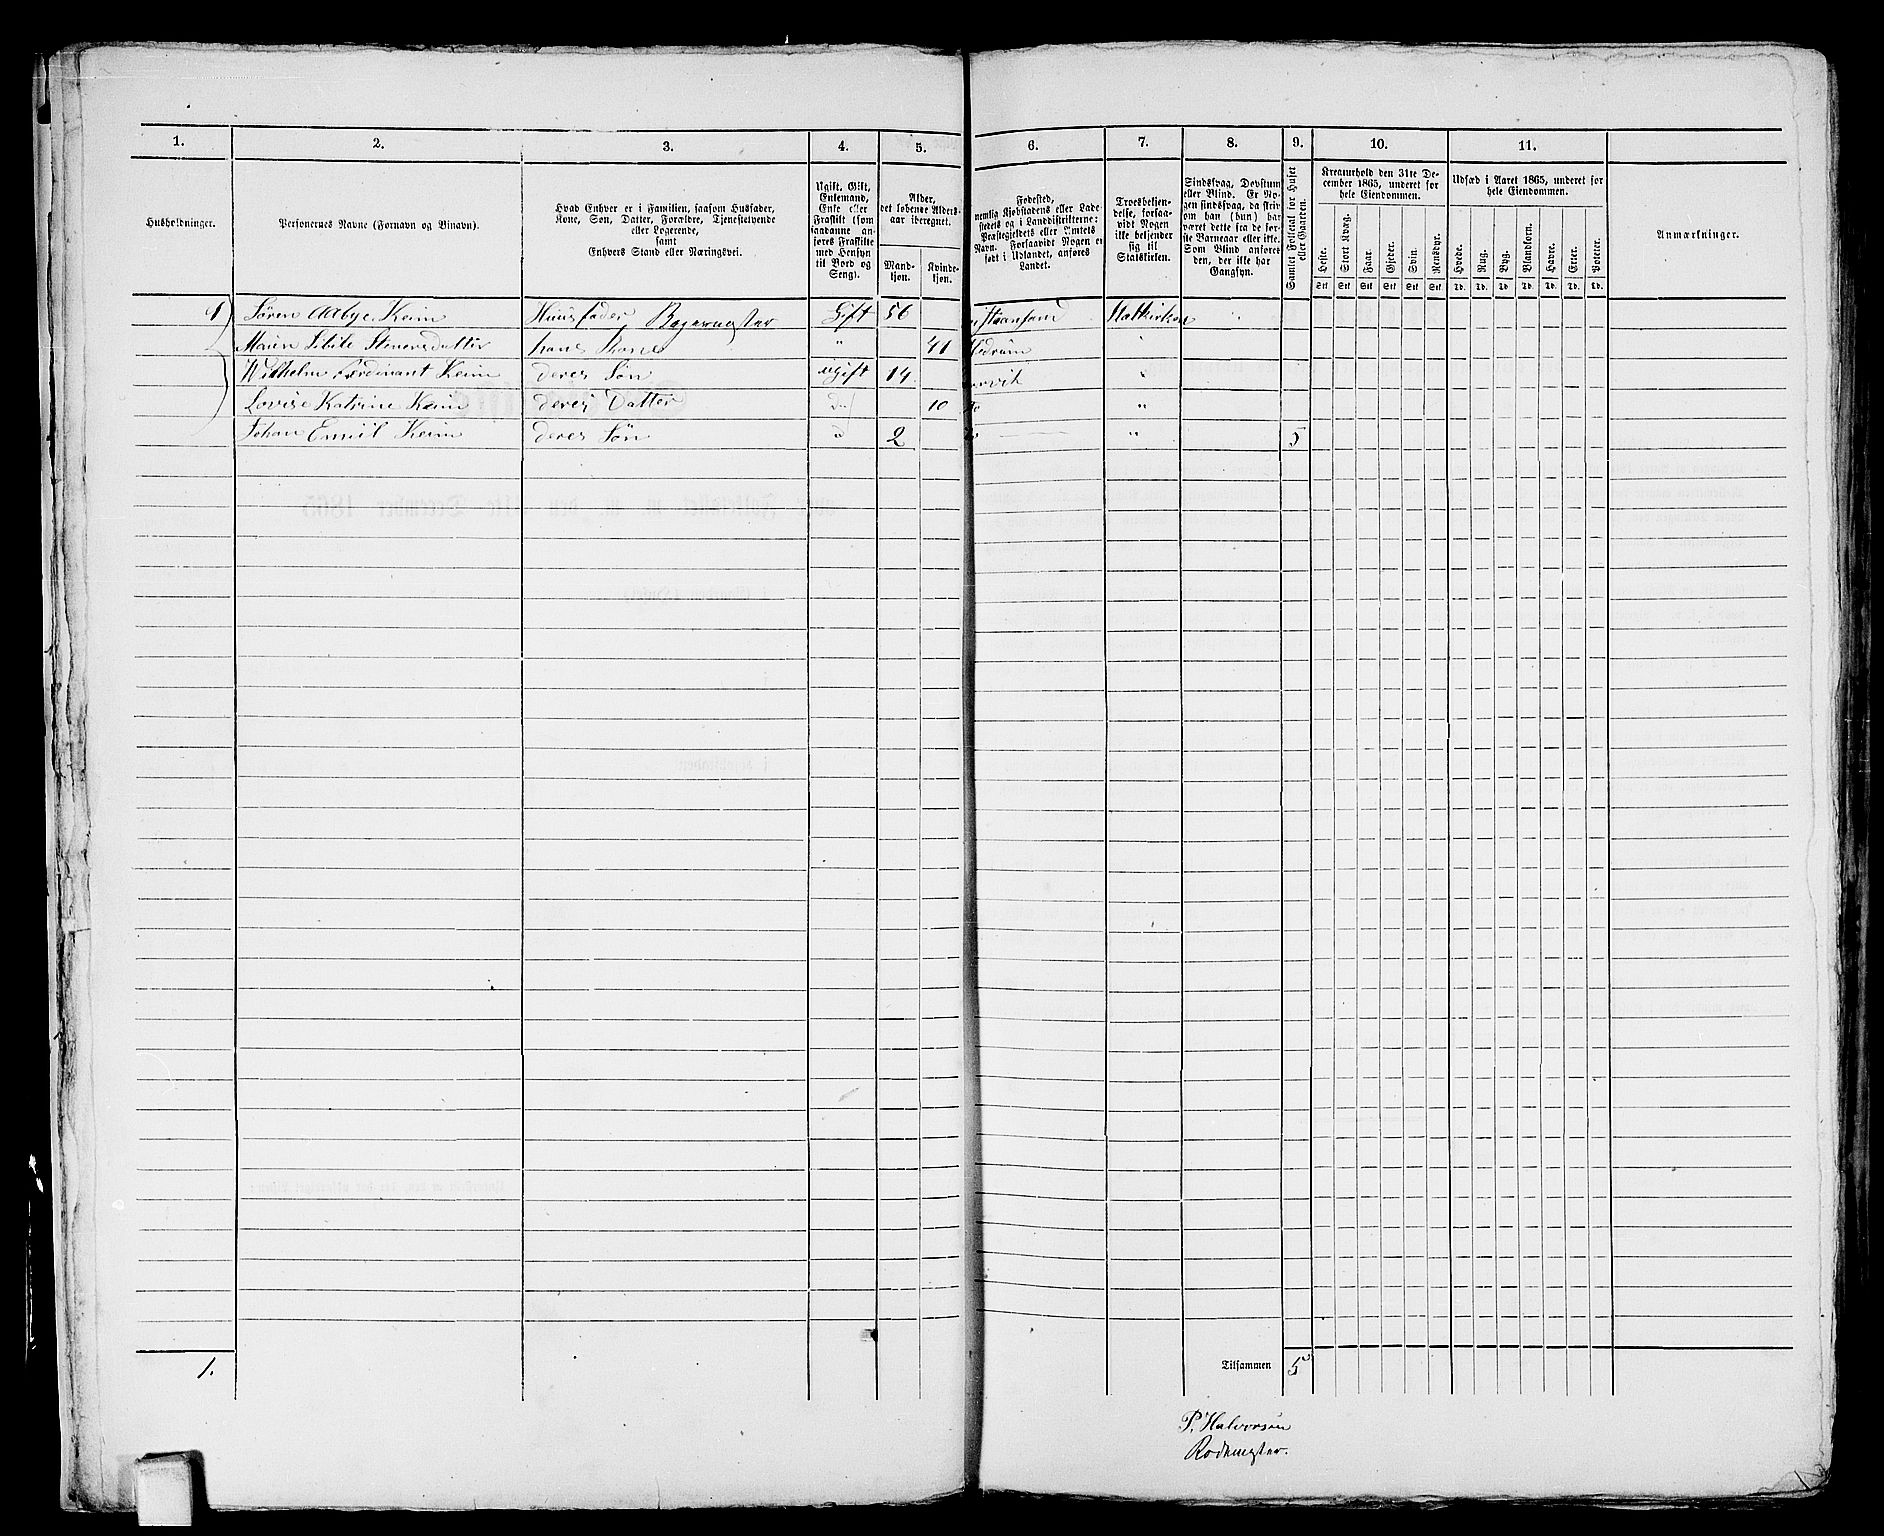 1. 2. 3. 4. 5. 6. 7. 8. 9. 10. 11.
Husholdninger.
Personernes Navne (Fornavn og Binavn).
Hvad Enhver er i Familien, saasom Husfader,
Kone, Søn, Datter, Forældre, Tjenestetyende
eller Logerende,
samt
Enhvers Stand eller Næringsvei.
Ugift, Gift,
Enkemand,
Enke eller
Fraskilt (som
saadanne an-
føres Fraskilte
med Hensyn
til Bord og
Seng).
Alder,
det løbende Alders-
aar iberegnet.
Mand-
kjøn.
Kvinde-
kjøn.
Fødested,
nemlig Kjøbstadens eller Lade-
stedets og i Landdistrikterne:
Præstegjeldets eller Amtets
Navn. Forsaavidt Nogen er
født i Udlandet, anføres
Landet.
Troesbekjen-
delse, forsaa-
vidt Nogen
ikke bekjender
sig til
Statskirken.
Sindssvag, Døvstum
eller Blind. Er No-
gen sindssvag, da skriv
om han (hun) har
været dette fra de før-
ste Barneaar eller ikke.
Som Blind anføres
den, der ikke har
Gangsyn.
Samlet Folketal for Huset
eller Gaarden.
Kreaturhold den 31te De-
cember 1865, underet for
hele Eiendommen.
Heste. Stort Kvæg. Faar Gjeder. Svin. Rensdyr.
Stk Stk Stk Stk Stk Stk
Udsæd i Aaret 1865, underet for
hele Eiendommen.
Hvede. Rug. Byg. Blandkorn. Havre. Erter. Poteter.
Td. Td. Td. Td. Td. Td. Td.
Anmærkninger.
1 Søren Aabye Keim Huusfader, Bagermester Gift 56 istiansand Statkirken "
Maren Sibile Stenersdatter hans Kone " 41 Hedrum "
Wilhelm Ferdinant Keim deres Søn ugift 14 urvik "
Lovise Katrine Keim deres Datter do 10 do "
Johan Emiil Keim deres Søn d 2 "
5
1.
Tilsammen 5
P. Halvorsen
Rodemester.